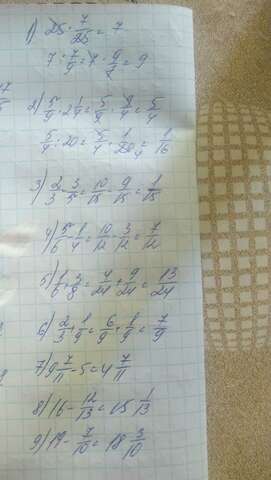 1) 25 · 7/25 = 7
7 : 7/9 = 7 · 9/7 = 9
2) 5/9 · 2 1/4 = 5/9 · 9/4 = 5/4
5/4 : 20 = 5/4 · 1/20 = 1/16
3) 2/3 - 3/5 = 10/15 - 9/15 = 1/15
4) 5/6 - 1/4 = 10/12 - 3/12 = 7/12
5) 1/6 + 3/8 = 4/24 + 9/24 = 13/24
6) 2/3 + 1/9 = 6/9 + 1/9 = 7/9
7) 9 7/11 - 5 = 4 7/11
8) 16 - 12/13 = 15 1/13
9) 19 - 7/10 = 18 3/10